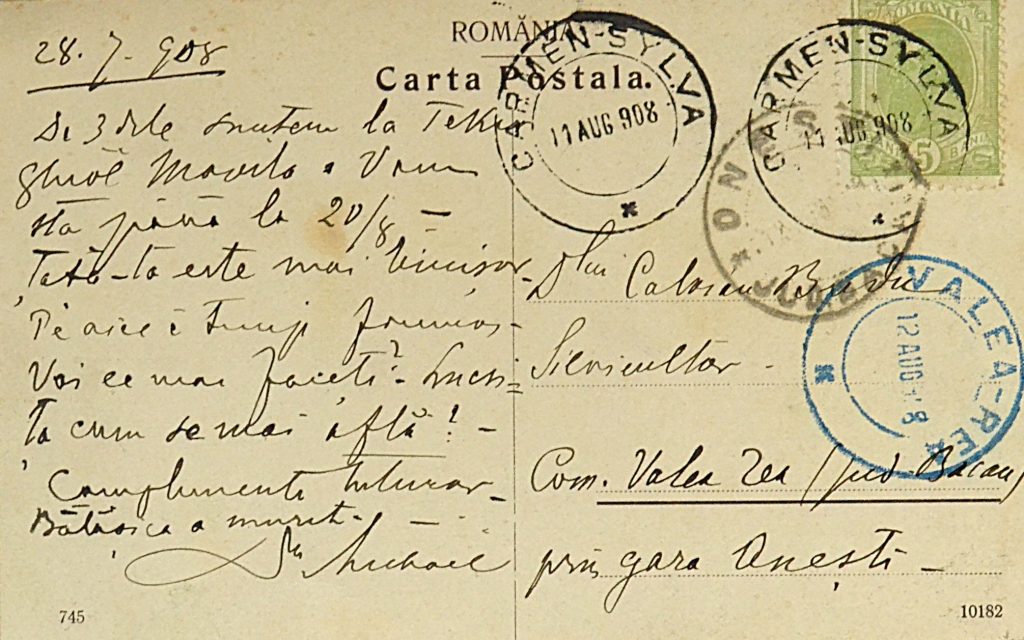 ROMÂNIA
Carta Postala.
28. 7. 908
De 3 zile suntem la Tekir
ghiol Movila. Vom
sta până la 20/8 —
Tata-ta este mai binișor
Pe aice e timp frumos —
Voi ce mai faceti? Luci=
ța cum se mai află? —
Complimente tuturor —
a murit. —
Dr Michael
745
CARMEN-SYLVA
11 AUG 908
CARMEN-SYLVA
11 AUG 908
ROMANIA
5
BANI
VALEA-REA
12 AUG 908
Dlui Radu
Silvicultor —
Com. Valea Rea (jud. Bacau)
prin gara Onești —
10182